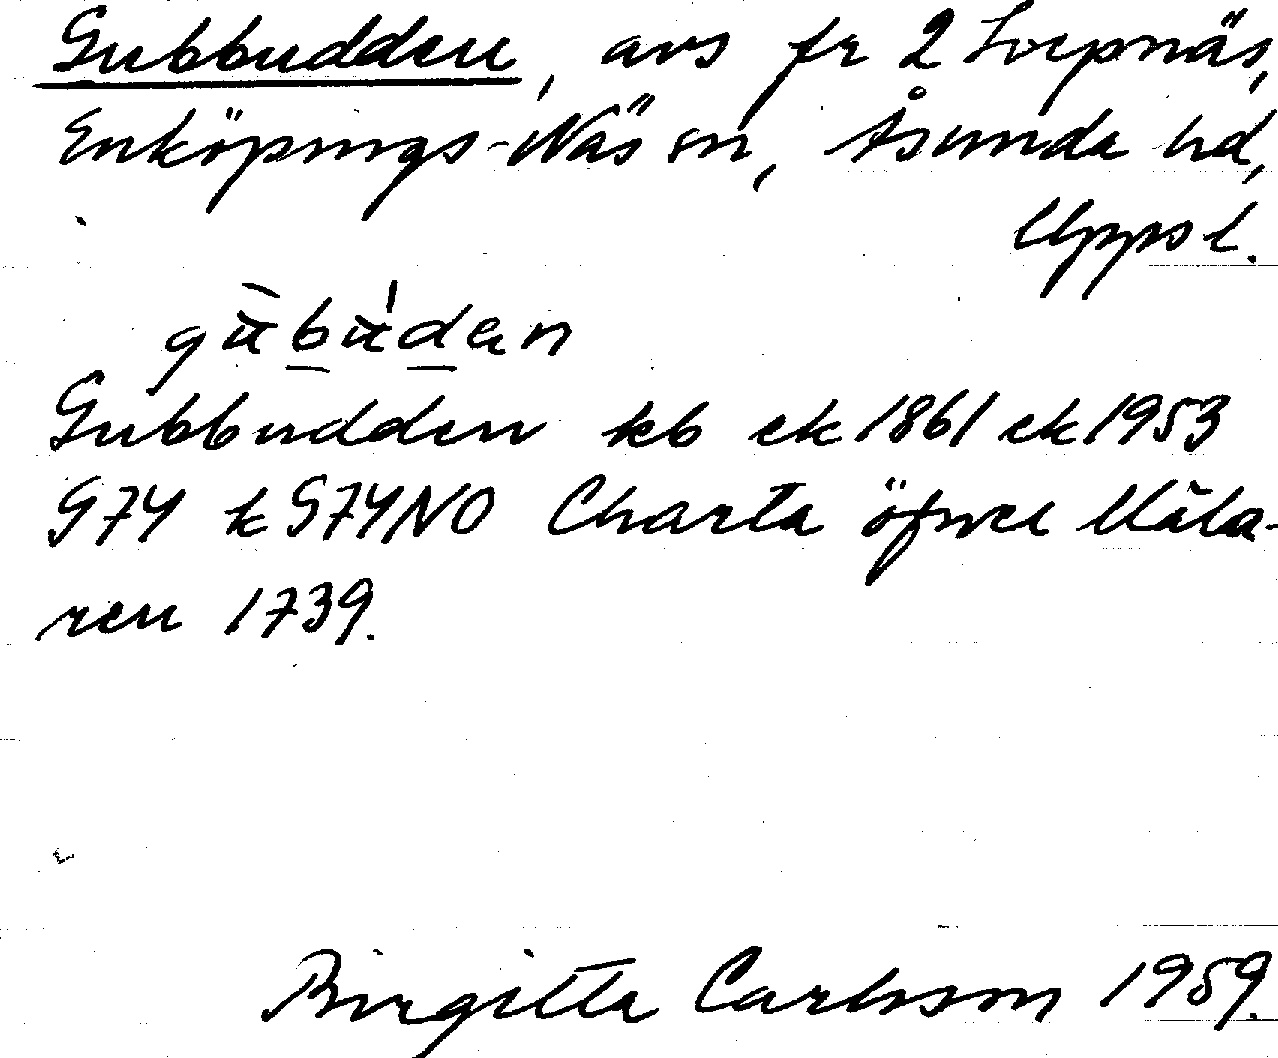 Gubbudden, avs fr 2 Svepnäs,
Enköpings-Näs sn, Åsunda hd,
Upps l.
gu̇̀bu̇́dan
Gubbudden kb ek 1861 ek 1953
G74 k G74NO Charta öfwer Mäla-
ren 1739.
Birgitta Carlsson 1959.